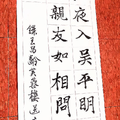 夜入吴平明
親友如相問
錄王昌齡芙蓉樓送